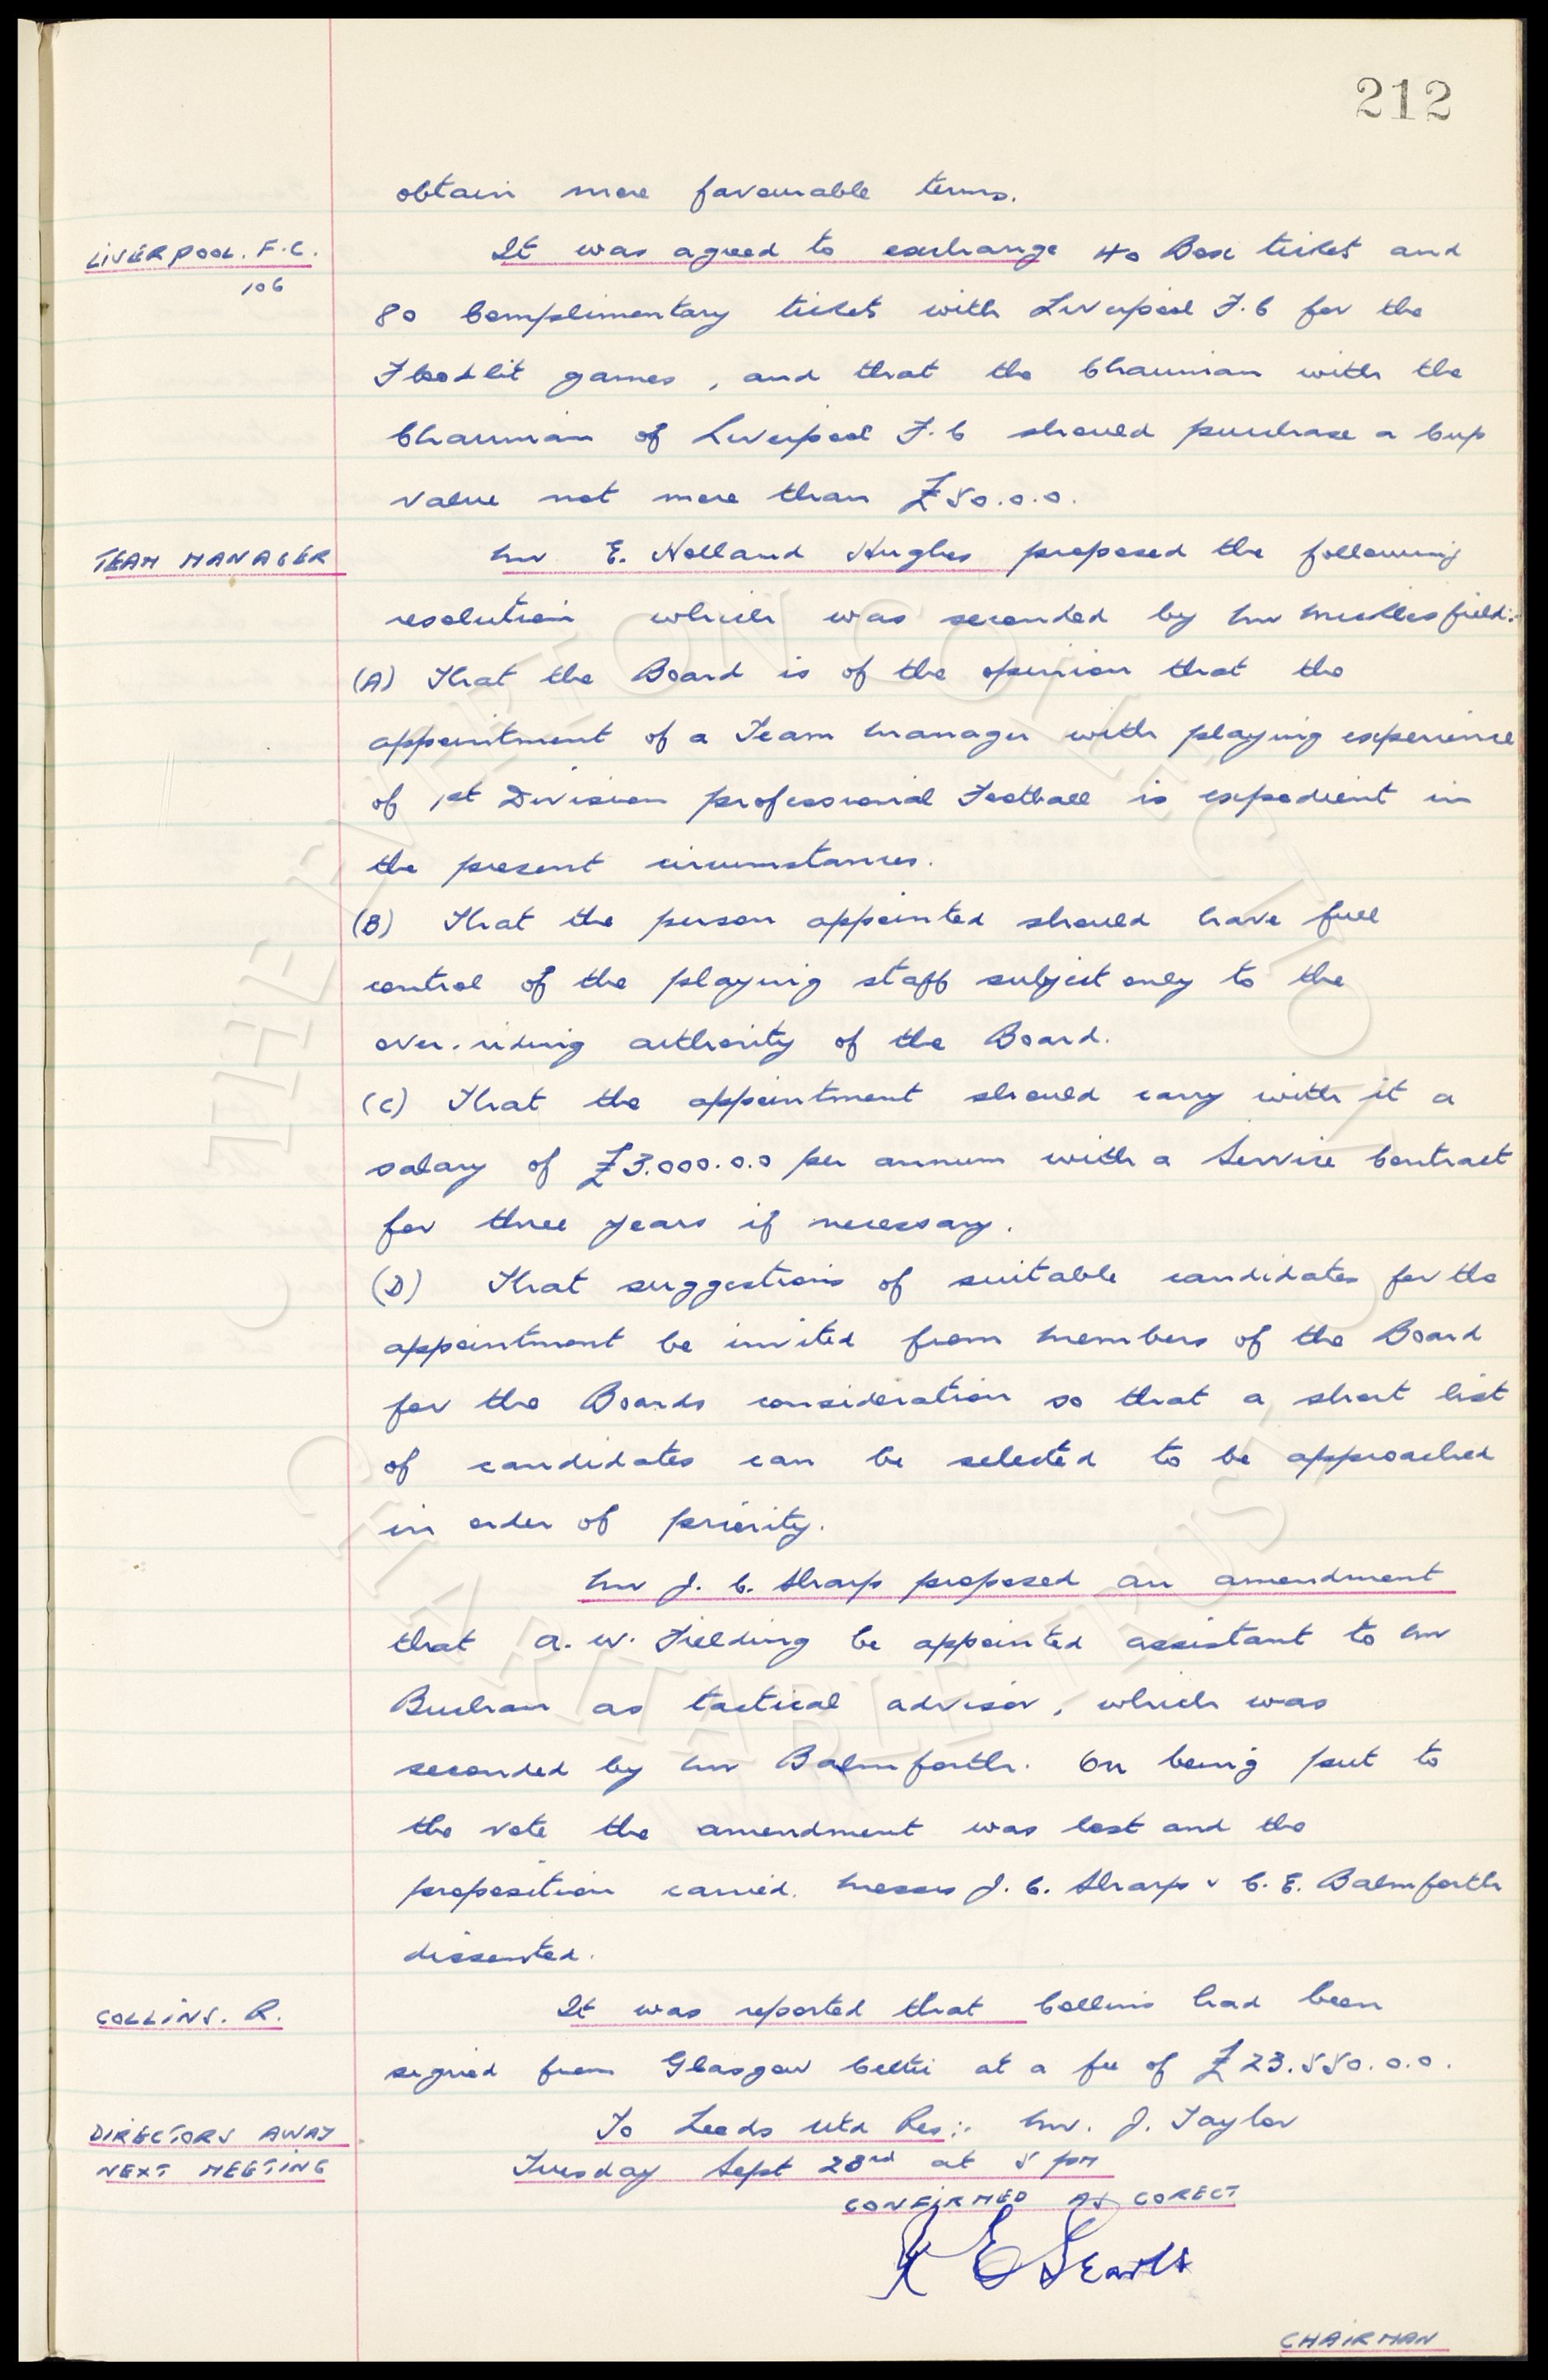 212
obtain more favourable terms.
LIVERPOOL. F.C.
106
It was agreed to exchange 40 Box ticket and
80 Complimentary ticket with Liverpool F.C for the
Floodlit games, and that the Chairman with the
Chairman of Liverpool F.C should purchase a Cup
value not more than £50.0.0.
TEAM MANAGER
Mr E. Holland Hughes proposed the following
resolution which was seconded by Mr Micklesfield:-
(A) That the Board is of the opinion that the
appointment of a Team Manager with playing experience
of 1st Division professional Football is expedient in
the present circumstances.
(B) That the person appointed should have full
control of the playing staff subject only to the
over-riding authority of the Board.
(C) That the appointment should carry with it a
salary of £3.000.0.0 per annum with a Service Contract
for three years if necessary.
(D) That suggestions of suitable candidates for the
appointment be invited from Members of the Board
for the Boards consideration so that a short list
of candidates can be selected to be approached
in order of priority.
Mr J. C. Sharp proposed an amendment
that A. W. Fielding be appointed assistant to Mr
Buchan as tactical advisor, which was
seconded by Mr Balmforth. On being put to
the vote the amendment was lost and the
proposition carried. Messrs J. C. Sharp & C. E. Balmforth
dissented.
COLLINS. R.
It was reported that Collins had been
signed from Glasgow Celtic at a fee of £23.550.0.0.
DIRECTORS AWAY
To Leeds Utd Res:- Mr. J. Taylor
NEXT MEETING
Tuesday Sept 23rd at 5 pm
CONFIRMED AS CORECT
CHAIRMAN
THE EVERTON COLLECTION
CHARITABLE TRUST